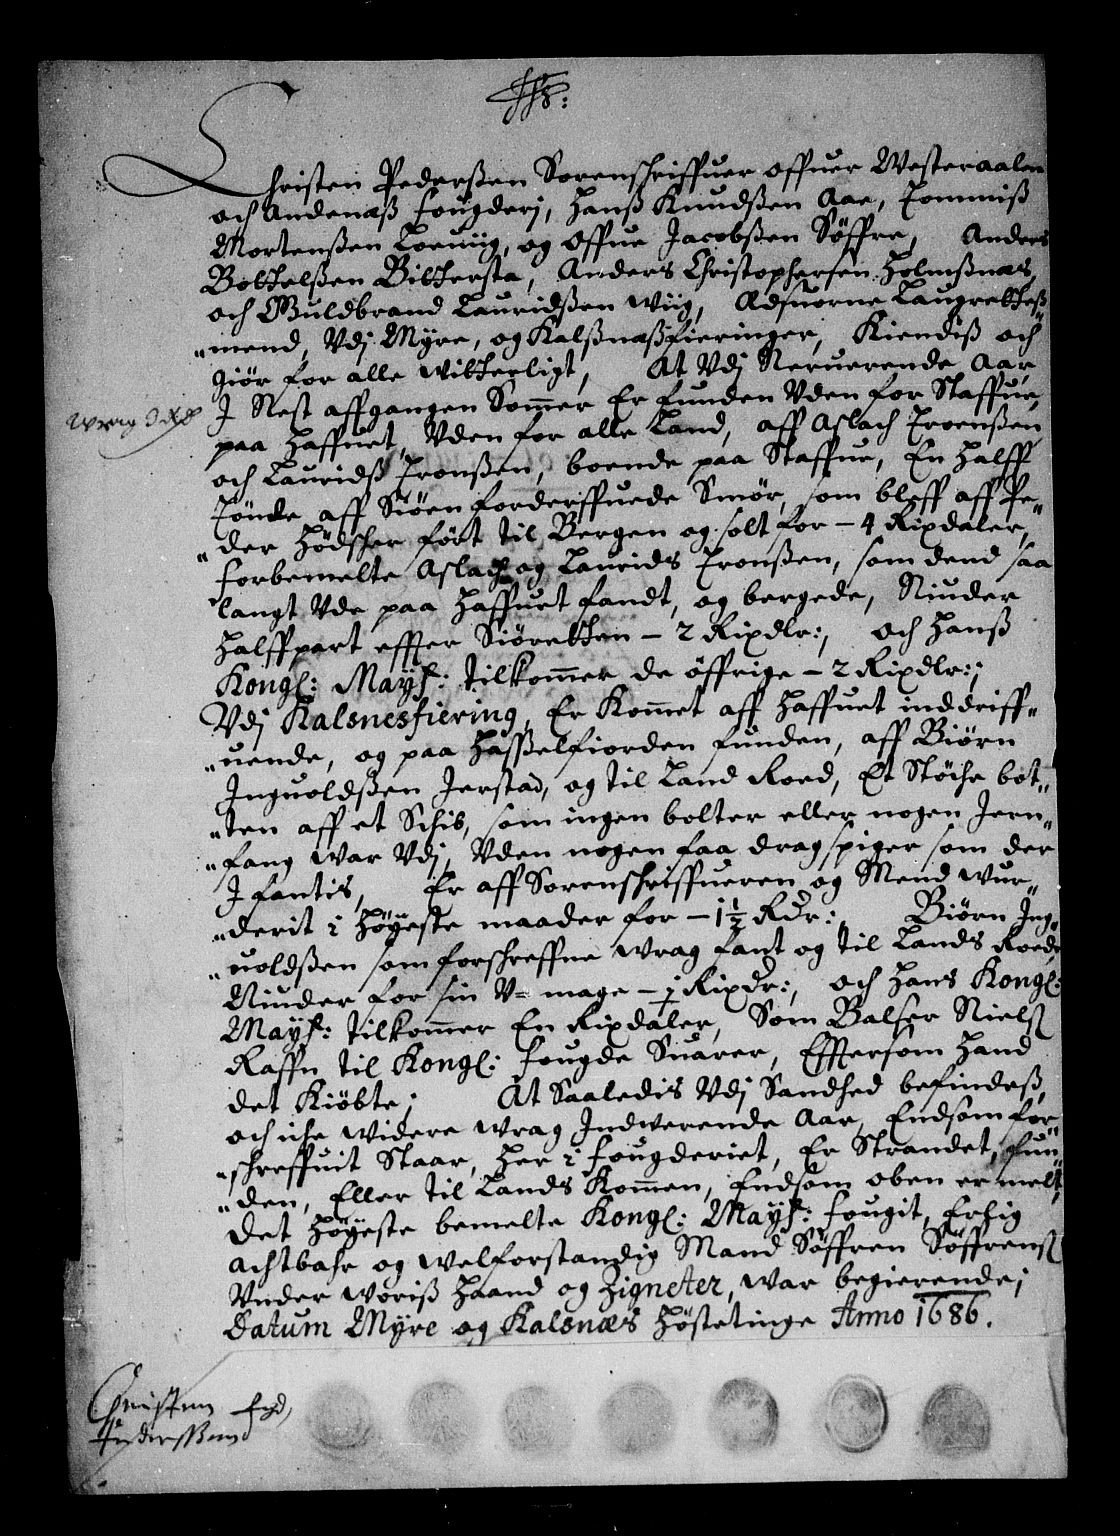 Jhs:
Christen Pederßen Sorenschriffuer offuer Westeraalen
och Andenæß fougderj, Hanß Knudßen Aae, Tommiß
Mortenßen Loeuiig, og Offue Jacobßen Søffre, Anders
Bottelßen Bittersta, Anders Christophersen Holmßnæs,
och Guldbrand Lauridßen Wiig, Adsuorne Laugretteß
"mend, Vdj Myre, og Kalßnæßfieringer, Kiendiß och
giør for alle witterligt, At Vdj Neruerende Aar,
J Nest affgangen Sommer Er funden Vden for Staffue,
Wrag 3 Rd
paa Haffuet, Vden for alle Land, aff Aslach Tronßen
och Lauridß Tronßen, boende paa Staffue, En Halff
Tønde aff Siøen forderffuede Smør, som bleff aff Pe"
"der Hødscher ført til Bergen og solt for - 4 Rixdaler,
forbemelte Aslach og Laurids Tronßen, som dend saa
langt Vde paa Haffuet fandt, og bergede, Niuder
Halffpart effter Siøretten - 2 Rixdlr:, och Hanß
Kongl: Mayst: tilkommer de øffrige - 2 Rixdlr:;
Vdj Kalsnesfiering, Er Kommet aff Haffuet inddriff"
"uende, og paa Hasselfiorden funden, aff Biørn
Inguoldßen Jerstad, og til Land Roed, Et Støche bot"
"ten aff et Schib, som ingen bolter eller nogen Jern"
"fang War Vdj, Vden nogen faa drag spiger som der
J fantis, Er aff Sorenschriffueren og Mend wur"
"derit i Høyeste maader for - 1 1/2 Rdr:, Biørn Ing"
"uoldßen som forschreffne wrag fant og til Lands Roede,
Niuder for sin V= mage - 1/2 Rixdr:, och Hans Kongl:
Mayst: tilkommer En Rixdaler, Som Balser Nielß
Raffn til Kongl: fougde Suarer, Efftersom Hand
det Kiøbte; At Saaledis Vdj Sandhed befindeß,
och iche widere wrag Indwerende Aar, Endsom for"
"schreffuit Staar, Her i fougderiet, Er Strandet, fun"
"den, Eller til Lands Kommen, Endsom oben er melt,
Det Høyeste bemelte Kongl: Mayst: fougit, Erlig
achtbahr og welforstandig Mand Søffren Søffrenß
Vnder Woriß Haand og Zigneter, War begierende;
Datum Myre og Kalsnæs Høstetinge Anno 1686.
Christen
Pederßen